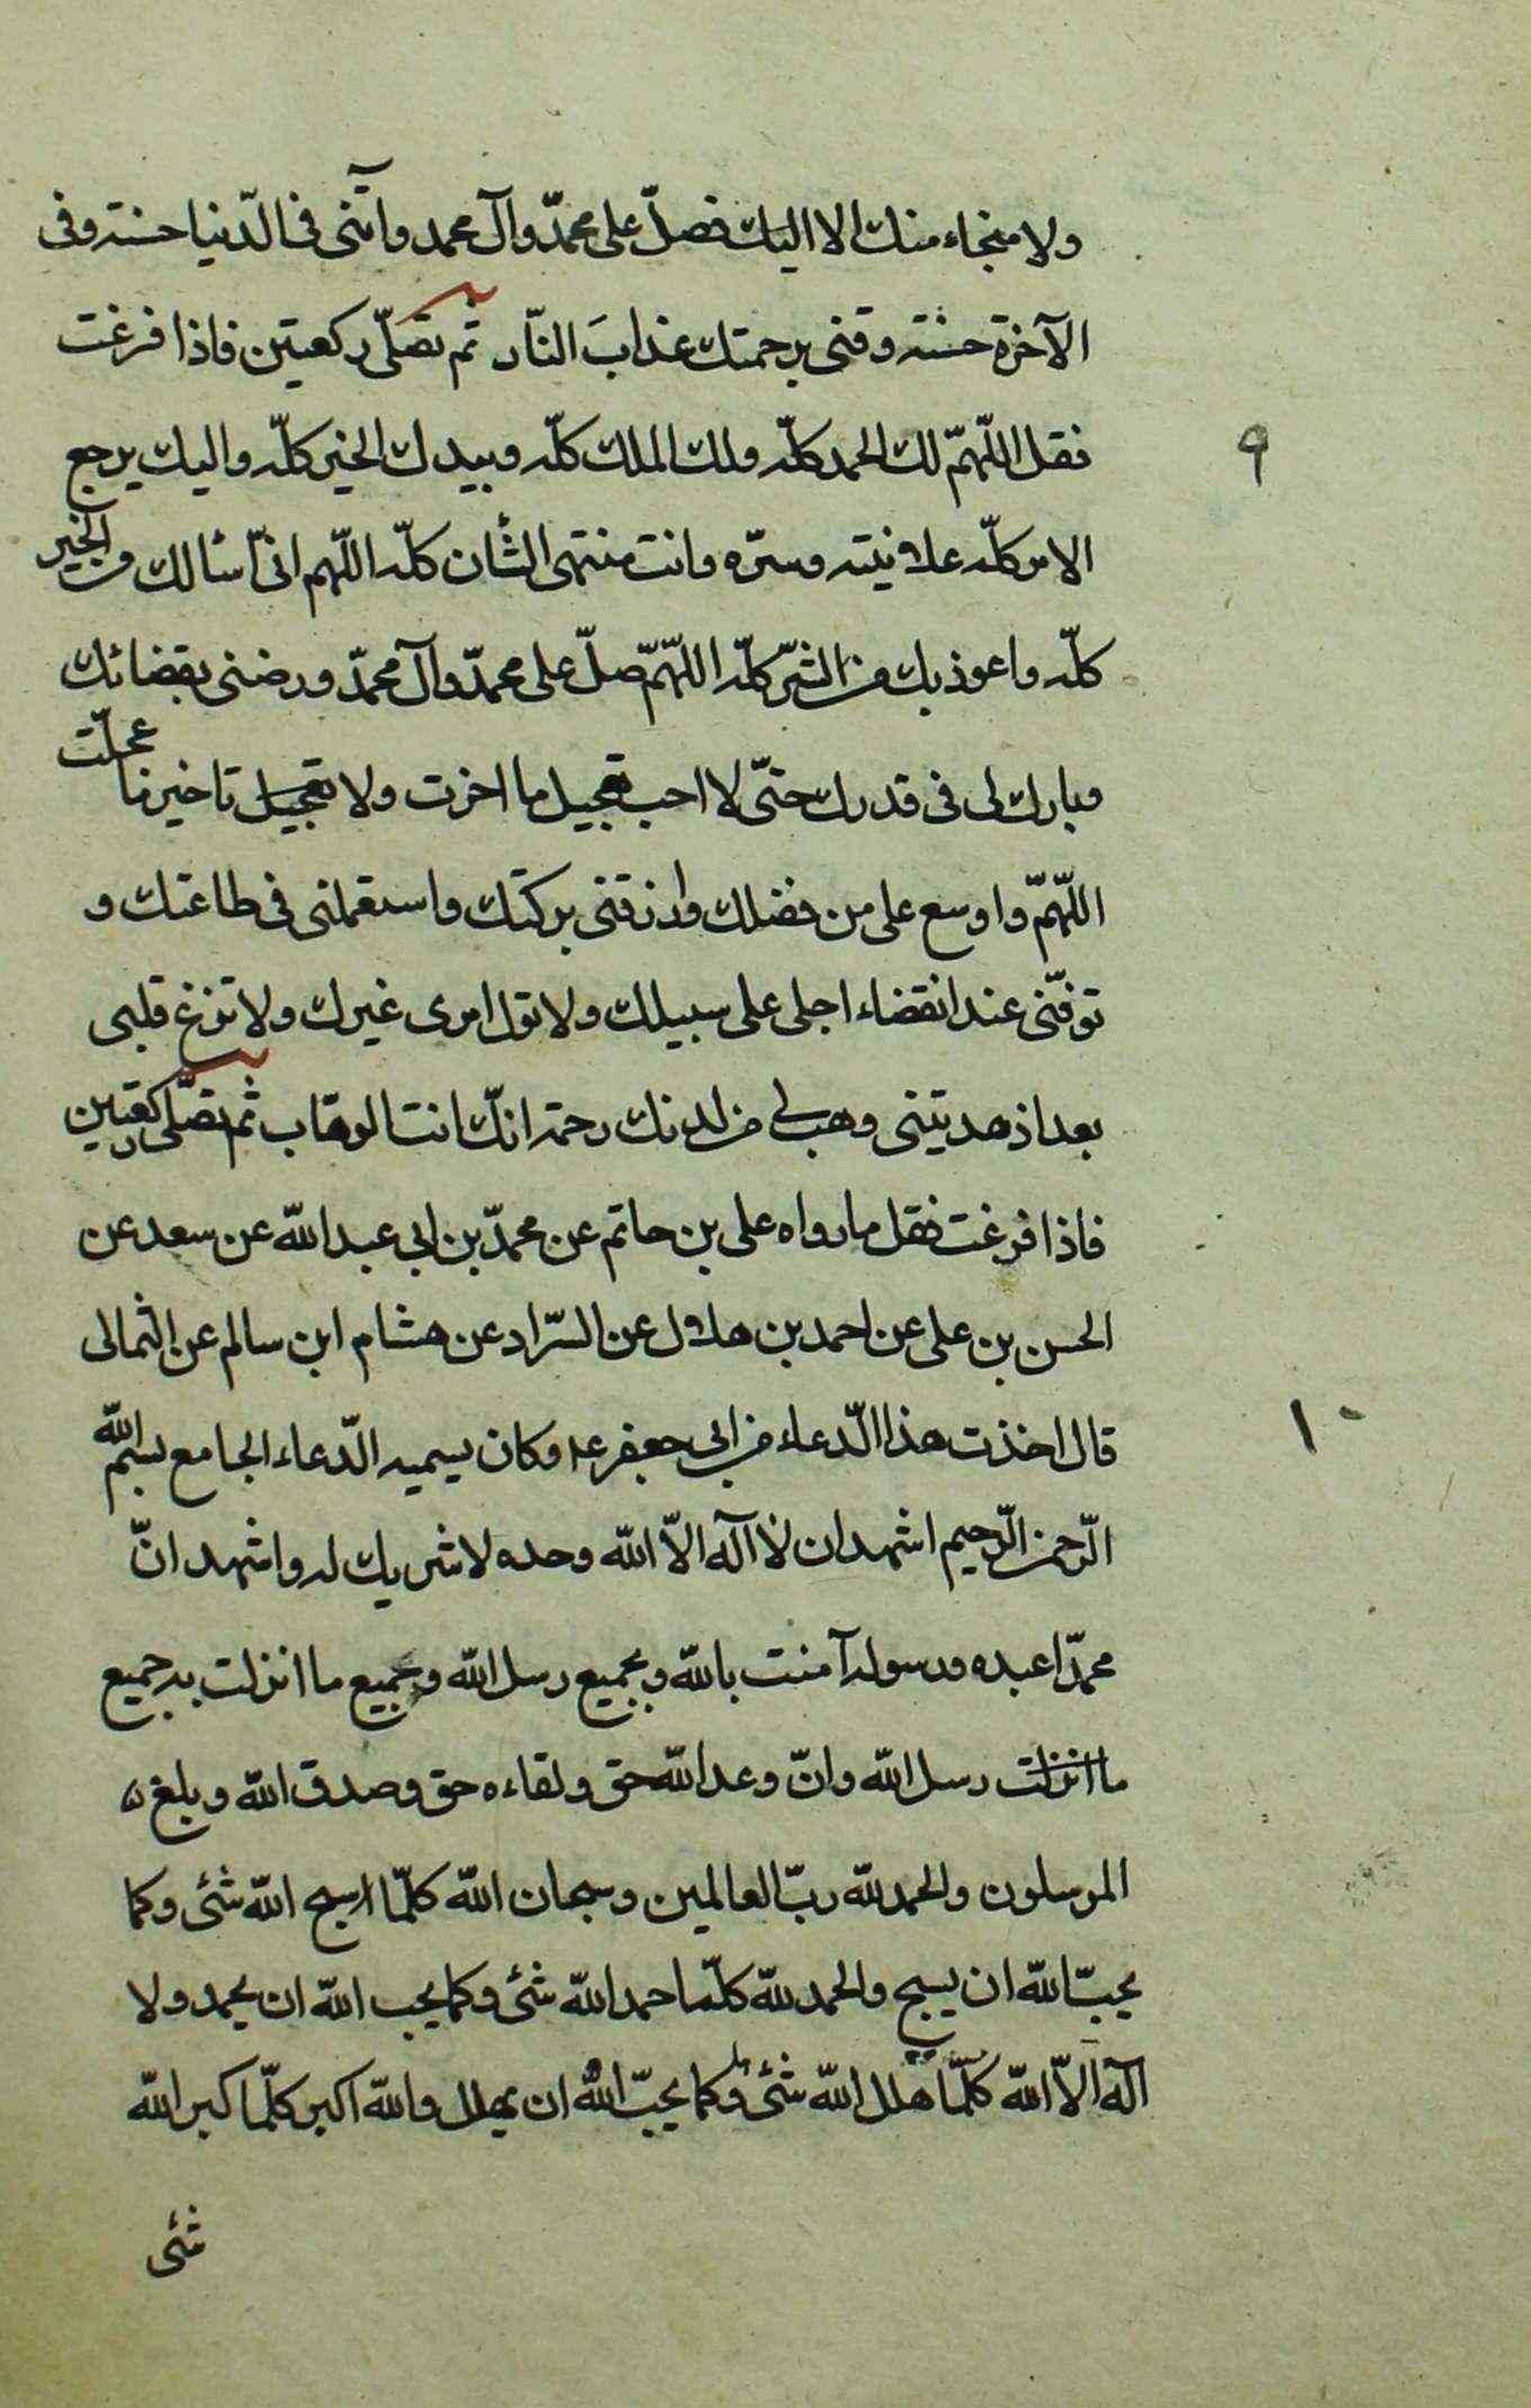 ولا منجاء منك الا اليك فصلّ على محمدّ وآل محمد وآتنى فى الدّنيا حسنة وفى
الآخرة حسنة وقنى برحمتك عذابَ النّار ثم تصلّى ركعتين فاذا فرغت
فقل اللّهمّ لك الحمد كلّه ولك الملك كلّه وبيدك الخير كلّه واليك يرجع
۹
الامر كلّه علانيته وسرّه وانت منتهى الشأن كلّه اللّهم انىّ اسالك من الخير
كلّه واعوذ بك من الشرّ كلّه اللّهمّ صلّ على محمدّ وآل محمدّ ورضنى بقضائك
وبارك لى فى قدرك حتّى لا احب تعجيل ما اخرت ولا تعجيل تاخير ما عجلّت
اللّهمّ واوسع على من فضلك وارزقنى بركتك واستعملنى فى طاعتك و
توفّنى عند انقضاء اجلى على سبيلك ولا تول امرى غيرك ولا تزغ قلبى
بعد اذ هديتنى وهب لى من لدنك رحمة انكّ انت الوهّاب ثم تصلّى ركعتين
فاذا فرغت فقل ما رواه على بن حاتم عن محمدّ بن ابى عبد الله عن سعد عن
الحسن بن على عن احمد بن هلال عن السّراد عن هشام ابن سالم عن الثمالى
قال اخذت هذا الدّعاء من ابى جعفر عه وكان يسميه الدّعاء الجامع بسم الله
۱۰
الرّحمن الرّحيم اشهد ان لا اله الاّ الله وحده لا شريك له واشهد انّ
محمدّا عبده ورسوله آمنت بالله وبجميع رسل الله وجميع ما انزلت به جميع
ما انزلت رسل الله وانّ وعد الله حق ولقاءه حق وصدق الله وبلغ
المرسلون والحمد لله ربّ العالمين وسبحان الله كلّما سبح الله شئى وكما
يحبّ الله ان يسبح والحمد لله كلّما حمد الله شئى وكما يحب الله ان يحمد ولا
اله الاّ الله كلّما هلل الله شئى وكما يحبّ الله ان يهلل والله اكبر كلّما كبر الله
شئى